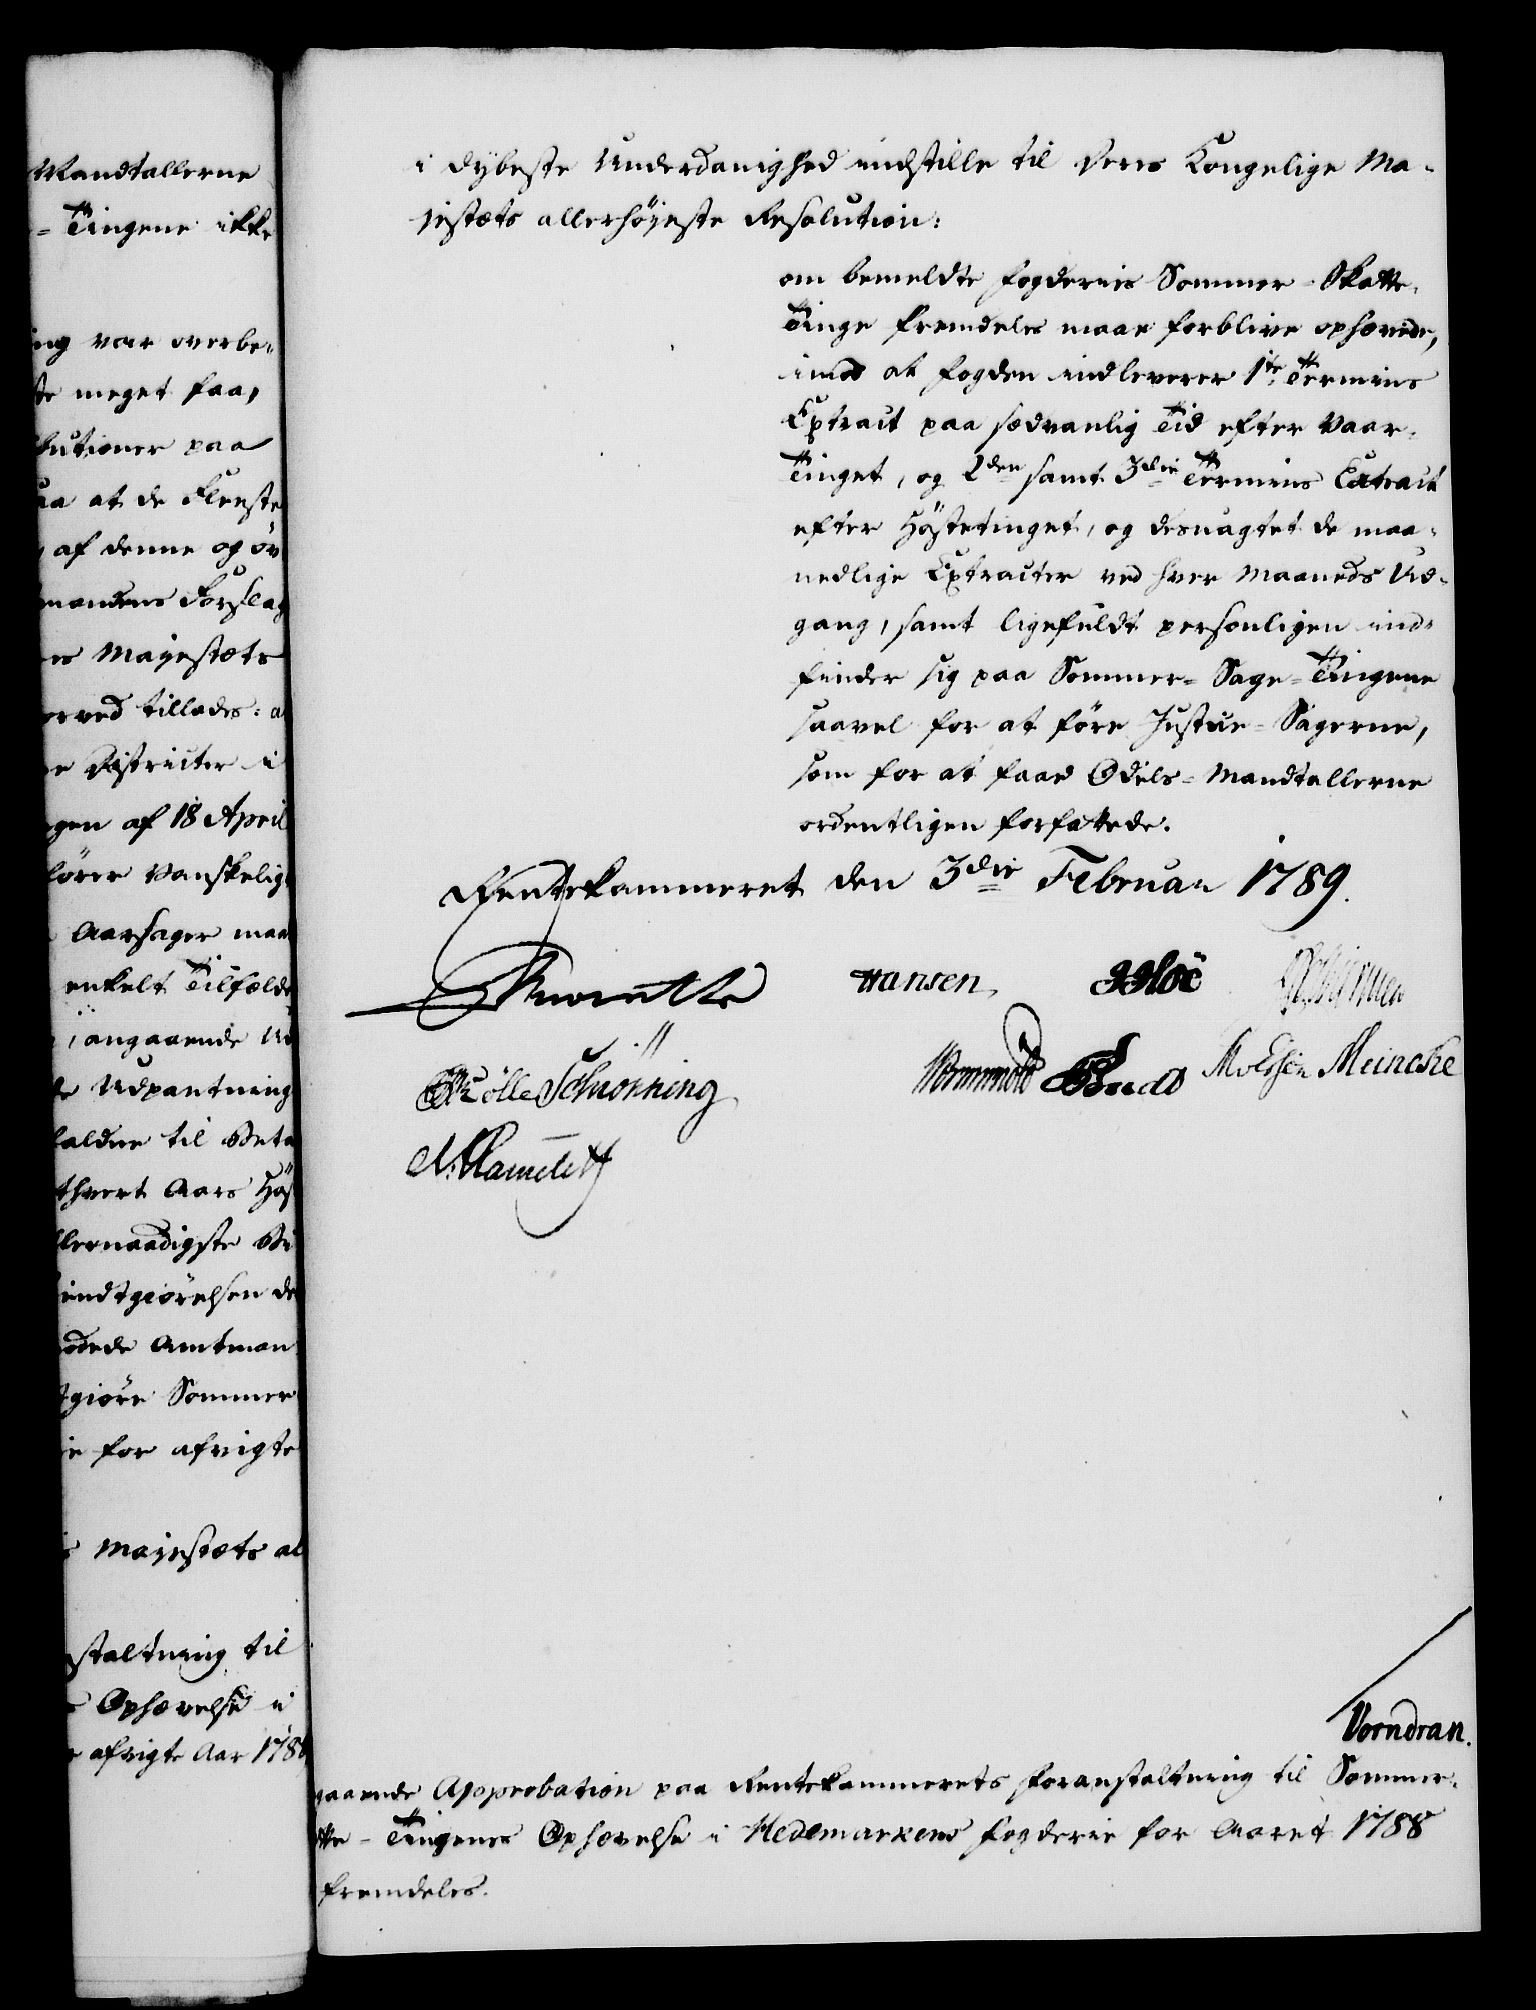 Mandtallerne
- Tingene ikke
ing var overbe-
meget faa,
butioner paa
at de fleeste
af denne og öv
mandens Forslag
Majestæts
erved tillades: a
Districter i
gen af 18 April
fører Vanskelig
Aarsager maa
enkelt Tilfælde
, angaaende Ud
Udpantning
faldne til Beta
thvert Aars Høs
llernaadigste Be
iendtgiørelsen de
Amtman
giøre Sommer
for afvigte
Majestæts al
staltning til
Ophævelse i
afvigte Aar 178
i dybeste Underdanighed indstille til Deres Kongelige Ma-
jestæts allerhöjeste Resolution:
om bemeldte Fogderies Sommer-Skatte-
Tinge fremdeles maae forblive ophævede,
imod at Fogden indleverer 1te Termins
Extract paa sædvanlig Tid efter Vaar-
Tinget, og 2den samt 3die Termins Extract
efter Höstetinget, og desuagtet de maa-
nedlige Extracter ved hver Maaneds Ud-
gang, samt ligefuldt personligen ind-
finder sig paa Sommer-Sage-Tingene
saavel for at före Justice-Sagerne,
som for at faae Odels-Mandtallerne
ordentligen forfattede.
Rentekammeret den 3die Februar 1789.
Hansen
Schiönning
Meincke
Vorndran.
gaaende Approbation paa Rentekammerets Foranstaltning til Sommer-
tte-Tingenes Ophævelse i Hedemarkens Fogderie for Aaret 1788
fremdeles.